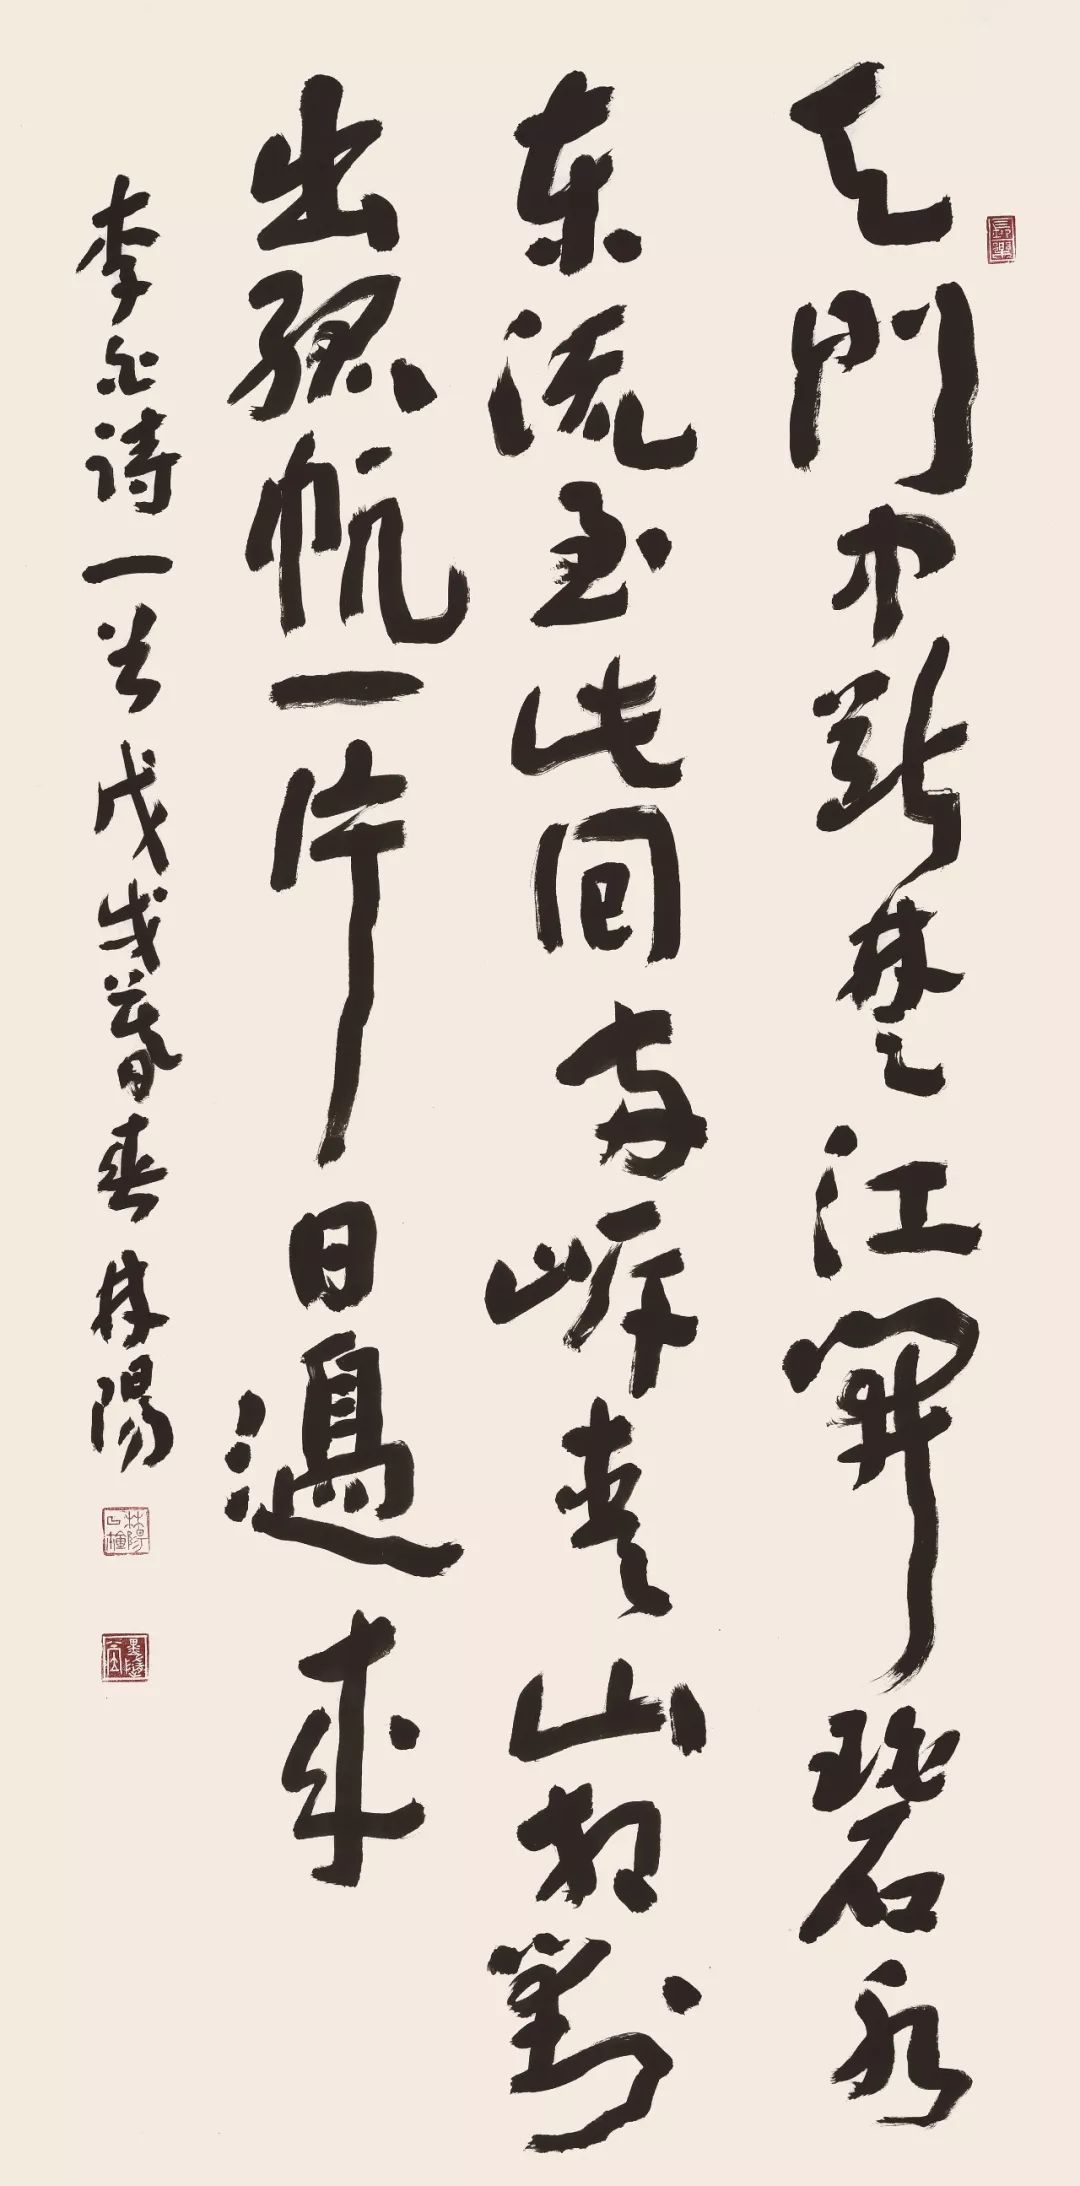 天門中斷楚江開碧水
東流至此回兩岸青山相對
出孤帆一片日邊來
李白詩一首戊戌暮春林陽